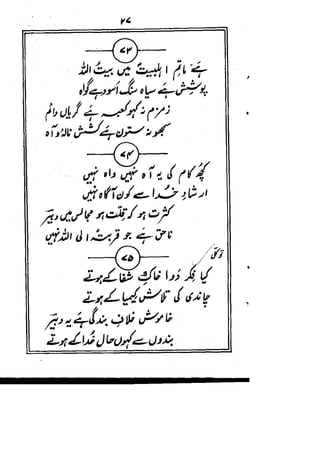 ۲۷
۷۳
ہے ماتمِ اہلبیتؑ میں بیت اللہ
پوشش ہے سیاہ سنگِ اسود ہے گواہ
زمزم نہ کہو کعبہ ہے گریاں دائم
سمجھو نہ ستون ہے کشش نالہ و آہ
۷۴
کچھ کام کی یہ آہ نہیں واہ نہیں
ارشادِ خدا سے کون آگاہ نہیں
کثرت ہو کہ قلت ہو مجالس میں دبیرؔ
ناحق ہے جو قربتہً الی اللہ نہیں
۷۵
کیا فکرِ دوا خاکِ شفا کے ہوتے
چاندی کی تلاش کیمیا کے ہوتے
خاموش خلافِ بندگی ہے یہ دبیرؔ
بندوں سے کہوں حال خدا کے ہوتے